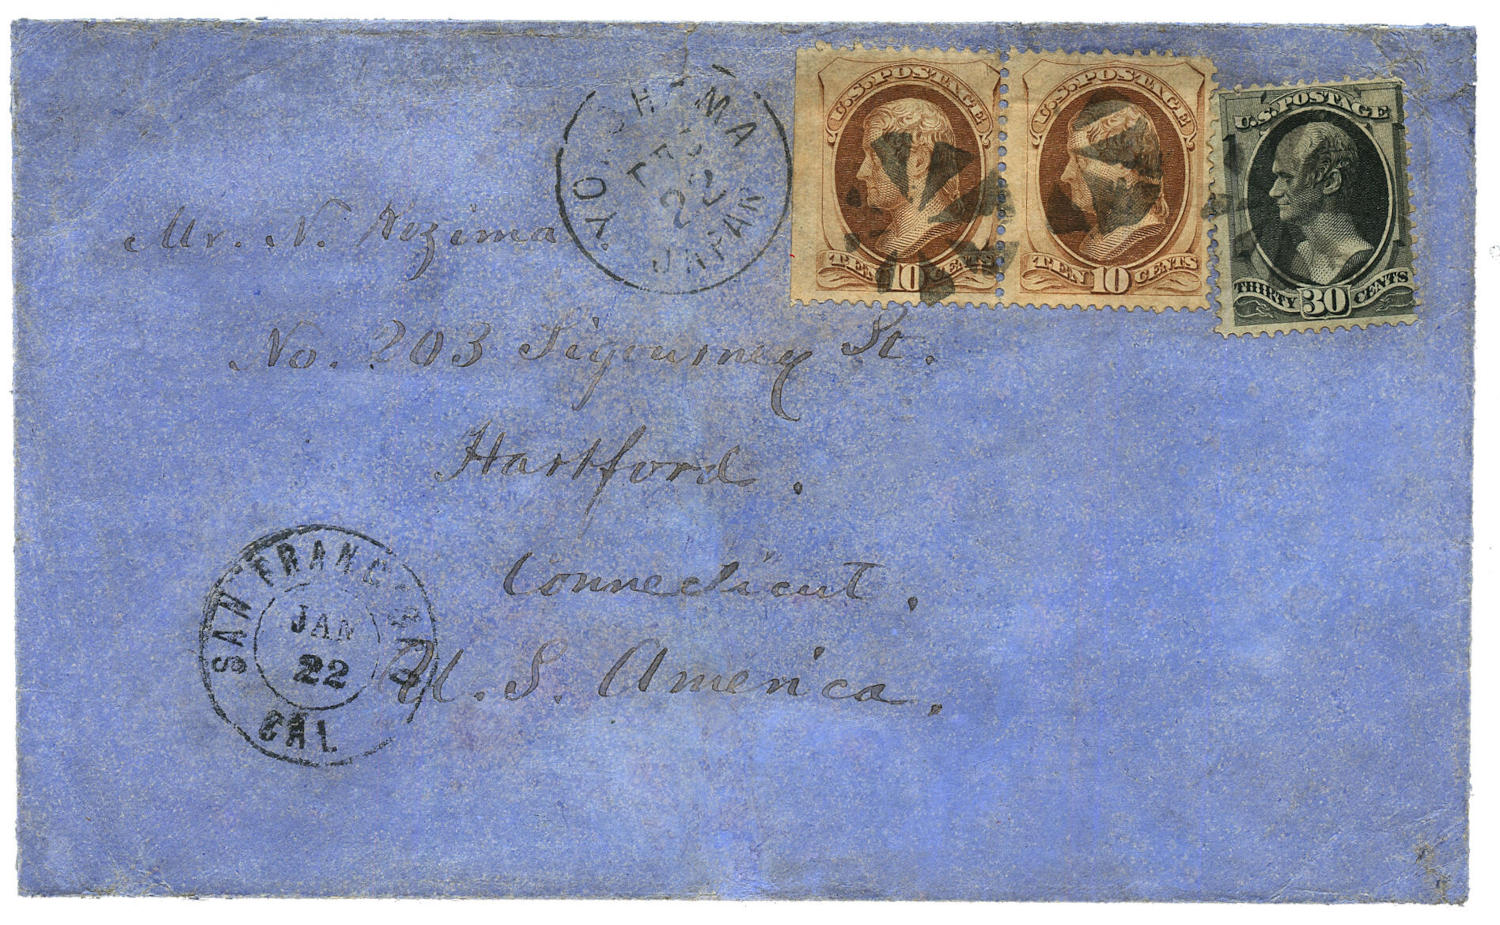 YOKOHAMA
DEC
22
JAPAN
U.S. POSTAGE
TEN 10 CENTS
U.S. POSTAGE
TEN 10 CENTS
U.S. POSTAGE
THIRTY 30 CENTS
Mr. N. Nizima
No. 203 Sigourney St.
Hartford.
Connecticut.
U. S. America.
SAN FRANCISCO
JAN
22
CAL